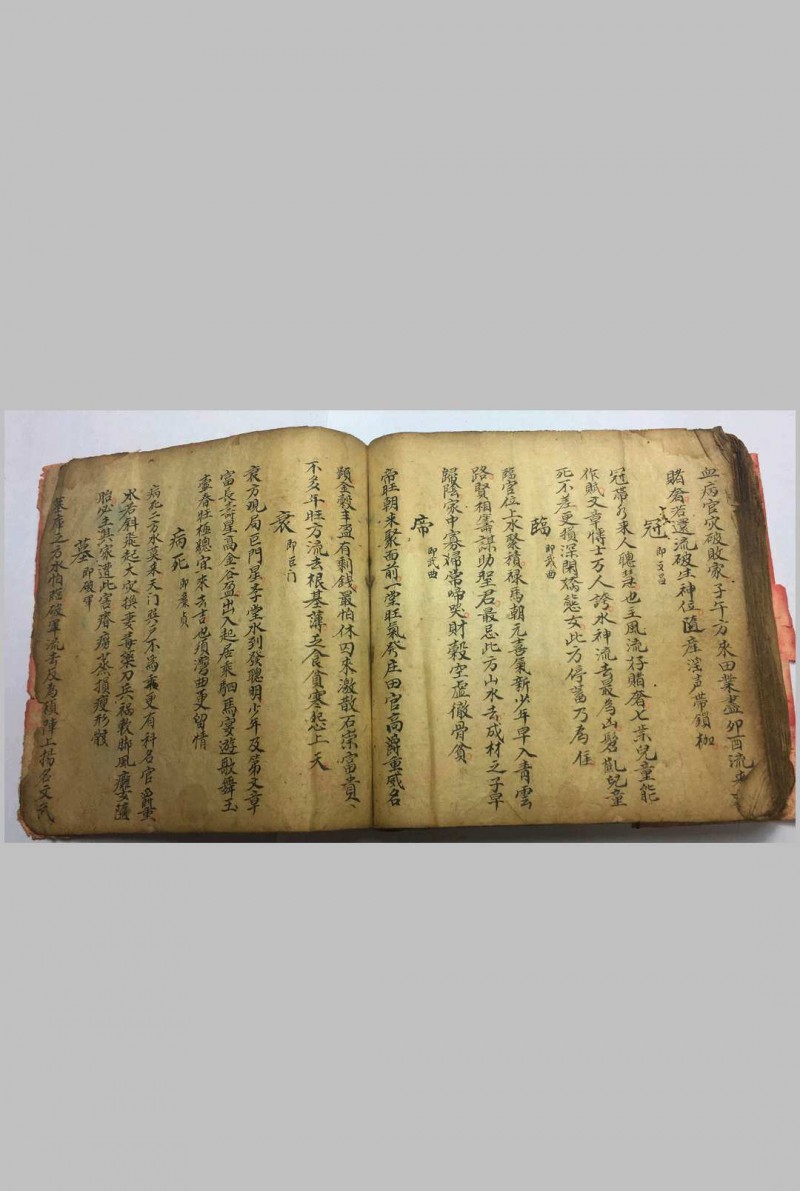 血病官灾破敗家子午方來田業盡卯酉流
賭奢若還流破生神位隨產淫声帶鎖枷
冠 即文昌
冠帶方來人聰慧也主風流好賭奢七歲兒童能
作賦文章博士万人誇水神流去最為凶髫齓兒童
死不差更損深閨嬌態女此方停蓄乃為佳
臨 即武曲
臨官位上水聚積祿馬朝元喜氣新少年早入青雲
路賢相籌謀助聖君最忌此方山水去成材之子早
歸陰家中寡婦常啼哭財穀空虛徹骨貧
帝 即武曲
帝旺朝來聚面前一堂旺氣發庄田官高爵重威名
顕金穀丰盈有剩錢最怕休囚來激散石崇富貴
不多年旺方流去根基薄乏食貧寒怨上天
衰 即巨门
衰方現局巨門星李堂水到發聰明少年及第文章
富長壽星高金谷盈出入起居乘駟馬宴遊歌舞玉
壺春壮極總宜來去吉也須灣曲更留情
病死 即亷貞
病死二方水莫來天门與戶不為乖更有科名官爵重
水若斜飛起大灾換妻毒藥刀兵禍軟脚風癱女墮
胎必主其家遭此害癆瘵蒸損瘦形骸
墓 即破軍
墓庫之方水怕 破軍流去反為 陣上揚名文武